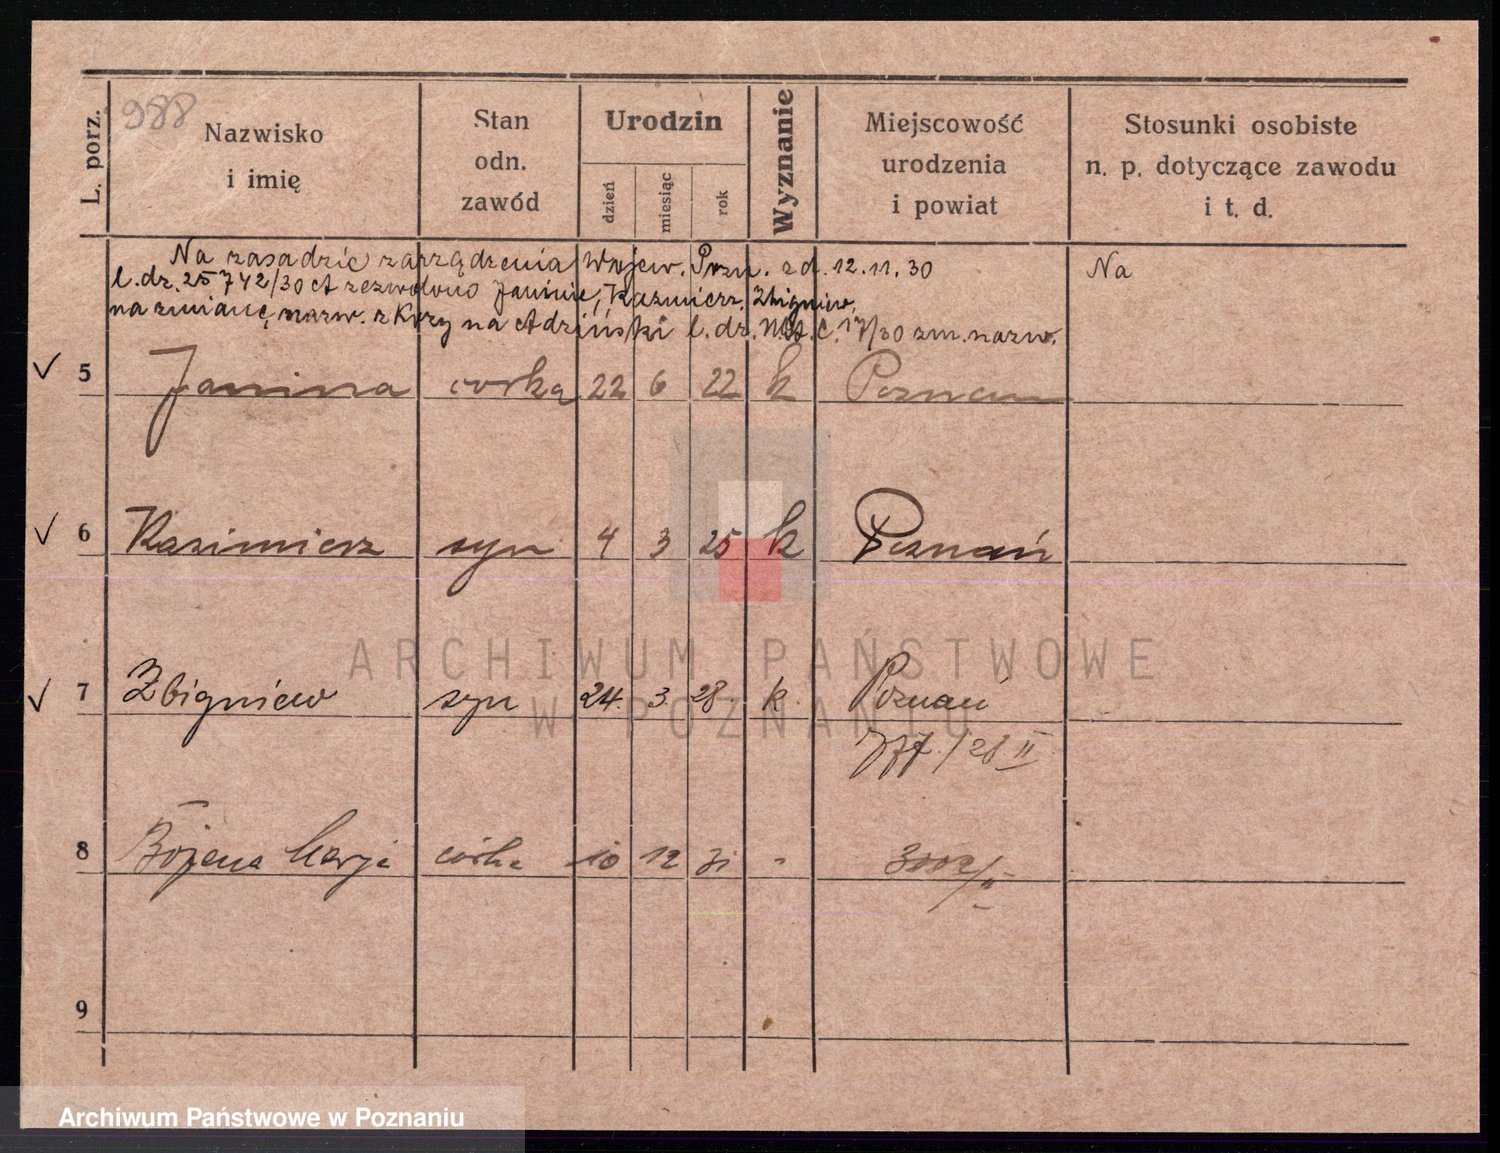 988
L. porz.
Nazwisko
i imię
Stan
odn.
zawód
Urodzin
dzień
miesiąc
rok
Wyznanie
Miejscowość
urodzenia
i powiat
Stosunki osobiste
n. p. dotyczące zawodu
i t. d.
Na zasadzie zarządzenia Wojew. Pozn. z d. 12.11.30 Na
l. dz. 25742/30 A zezwolono Janinie, Kazmierz. Zbigniew.
na zmianę nazw. z Kozy na Adziński l. dz. /30 zm. nazw.
5 Janina corka 22 6 22 k Poznan
6 Kazimierz syn 4 3 25 k Poznań
7 Zbigniew syn 24. 3. 28 k. Poznań
/28 II
8 Bożena Marja córka 10 12 31 "
9
ARCHIWUM PAŃSTWOWE
W POZNANIU
Archiwum Państwowe w Poznaniu